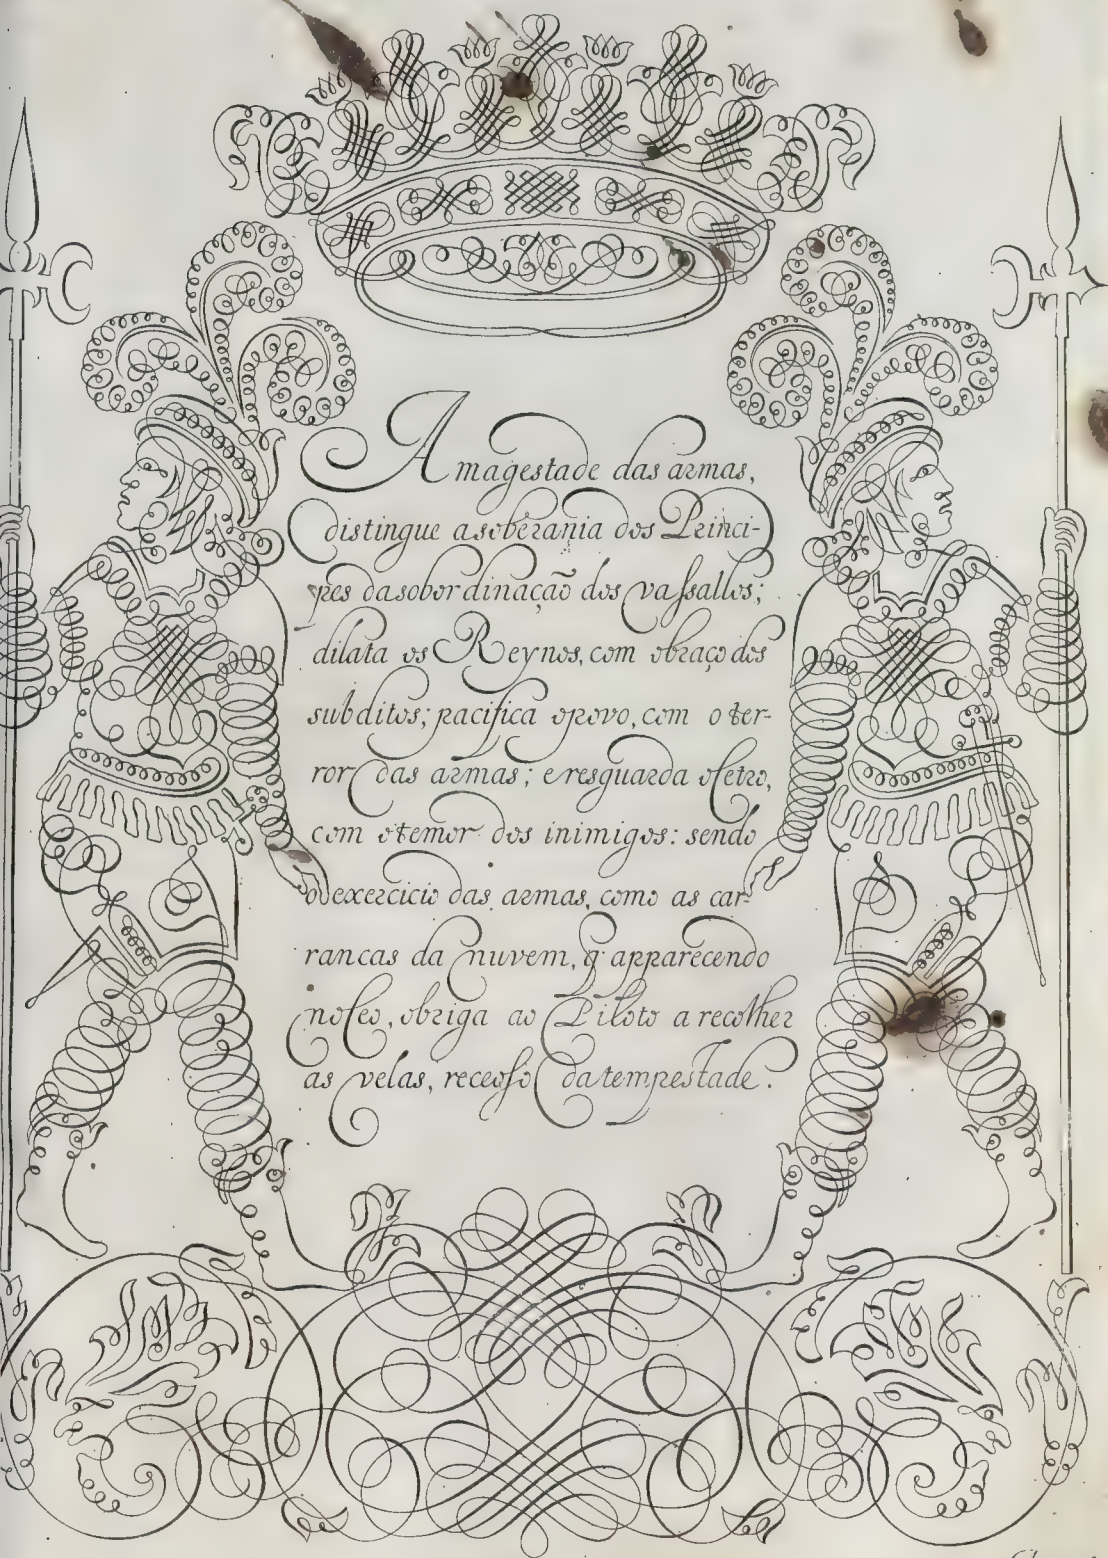 A magestade das armas,
distingue asoberania dos Princi-
pes dasobordinação dos vassallos;
dilata os Reynos, com obraço dos
subditos; pacifica opovo, com o ter-
ror das armas; e resguarda oCetro,
com otemor dos inimigos: sendo
oexercicio das armas, como as car-
rancas da nuvem, q̃ apparecendo
noCeo, obriga ao Piloto a recolher
as velas, receoso da tempestade.